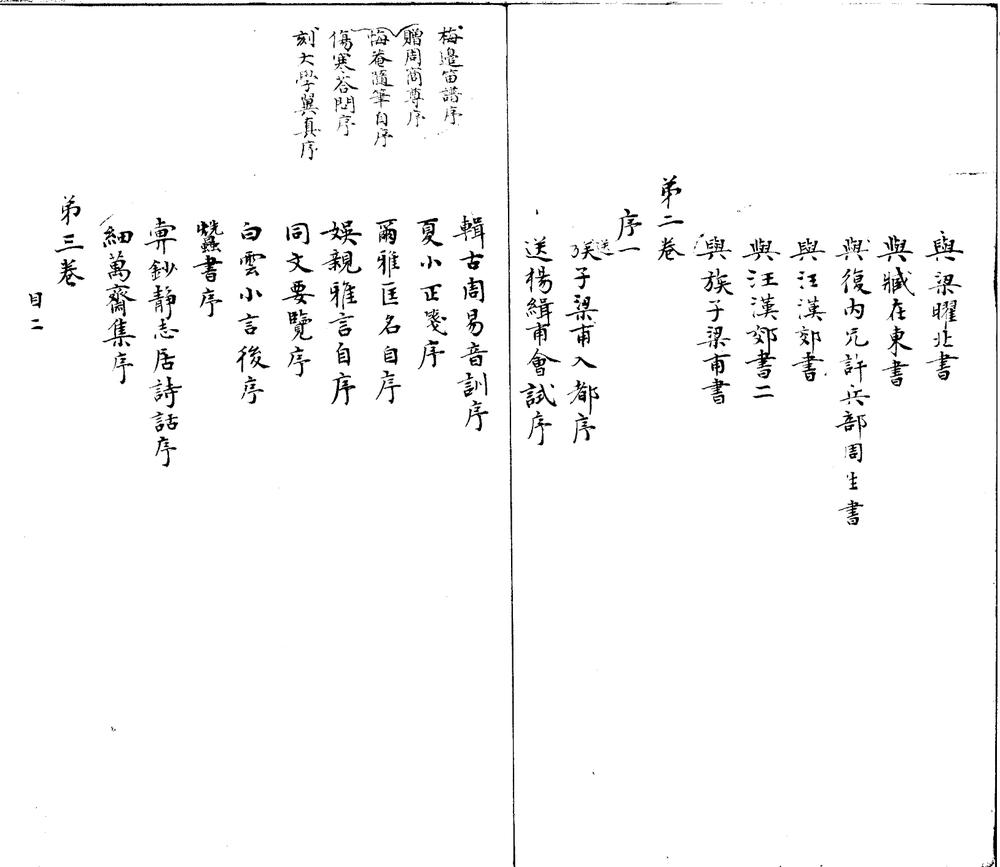 與梁曜北書
與臧在東書
與復內兄許兵部周生書
與汪漢郊書
與汪漢郊書二
與族子梁甫書
第二卷
序一
送族子梁甫入都序
送楊緝甫會試序
輯古周易音訓序
夏小正箋序
爾雅匡名自序
娛親雅言自序
同文要覽序
白雲小言後序
蠶書序
畀鈔靜志居詩話序
細萬齋集序
第三卷
目二
梅邊笛譜序
贈周尊序
悔菴隨筆自序
傷寒答問序
刻大學翼真序